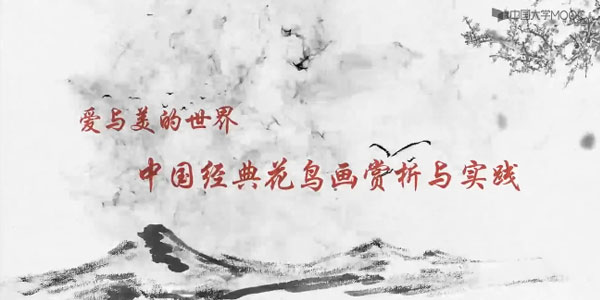 中国大学MOOC
爱与美的世界
中国经典花鸟画赏析与实践